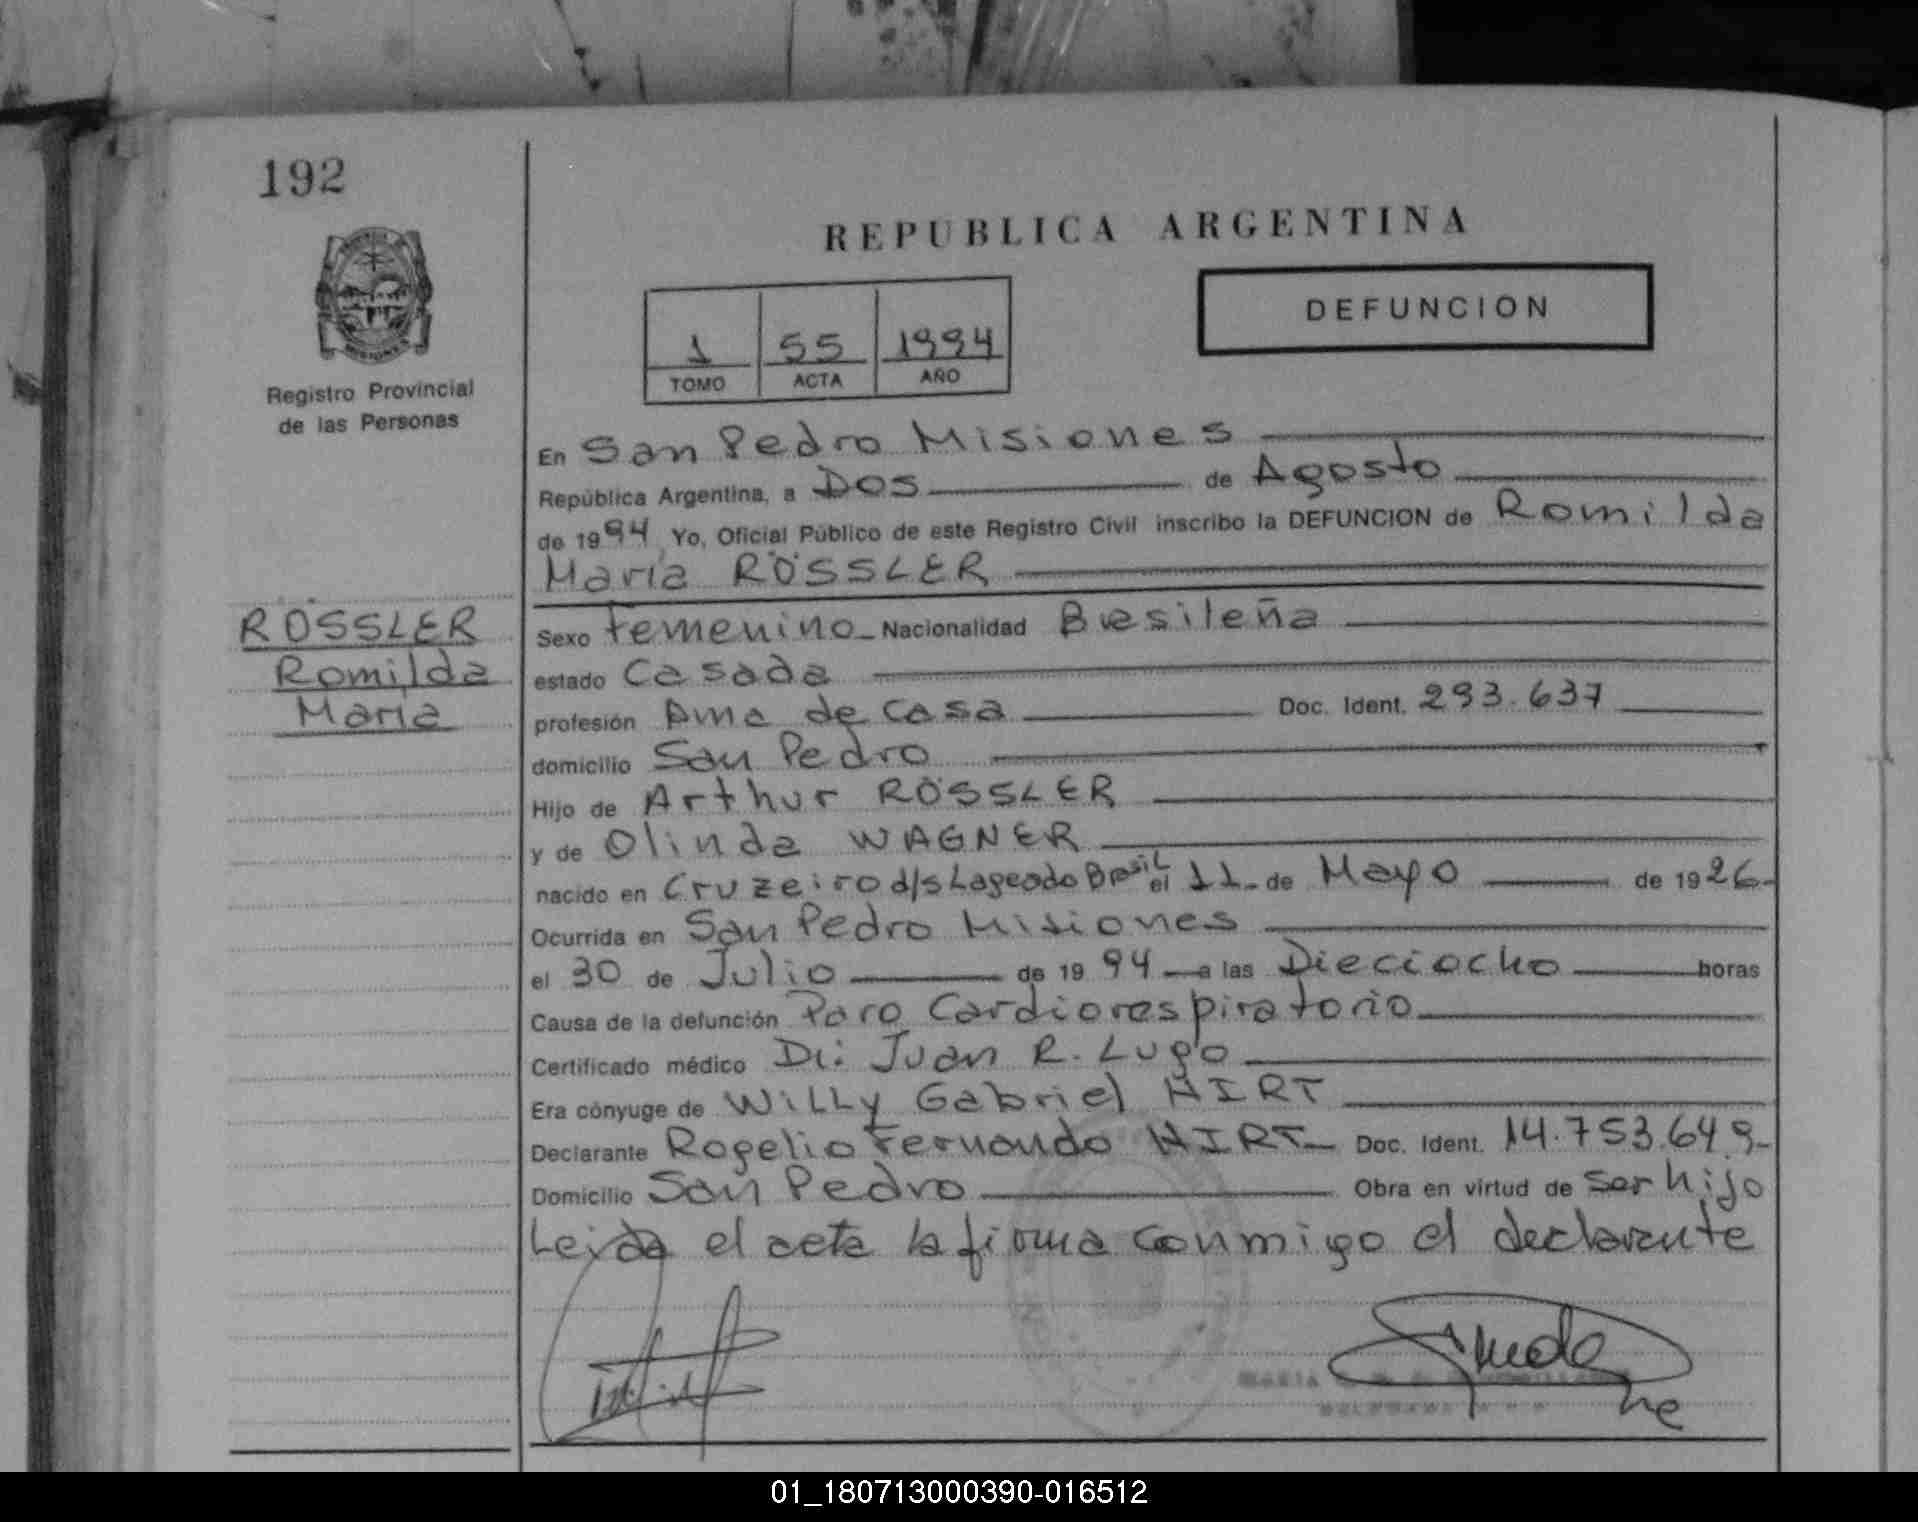 192
REPUBLICA ARGENTINA
DEFUNCION
1 55 1994
TOMO ACTA AÑO
MISIONES
Registro Provincial
de las Personas
RÖSSLER
Romilda
Maria
En San Pedro Misiones
República Argentina, a Dos de Agosto
de 1994 Yo, Oficial Público de este Registro Civil inscribo la DEFUNCION de Romilda
Maria RÖSSLER
Sexo Femenino Nacionalidad Brasileña
estado Casada
profesión Ama de Casa Doc. Ident. 293.637
domicilio San Pedro
Hijo de Arthur RÖSSLER
y de Olinda WAGNER
nacido en Cruzeiro d/s Lageado Brasil el 11 de Mayo de 1926
Ocurrida en San Pedro Misiones
el 30 de Julio de 1994 a las Dieciocho horas
Causa de la defunción Paro Cardiorespiratorio
Certificado médico Dr: Juan R. Lugo
Era cónyuge de WiLLy Gabriel HIRT
Declarante Rogelio Fernando HIRT Doc. Ident. 14.753.649
Domicilio San Pedro Obra en virtud de ser hijo
Leida el acta la firma conmigo el declarante
MARIA
01_180713000390-016512